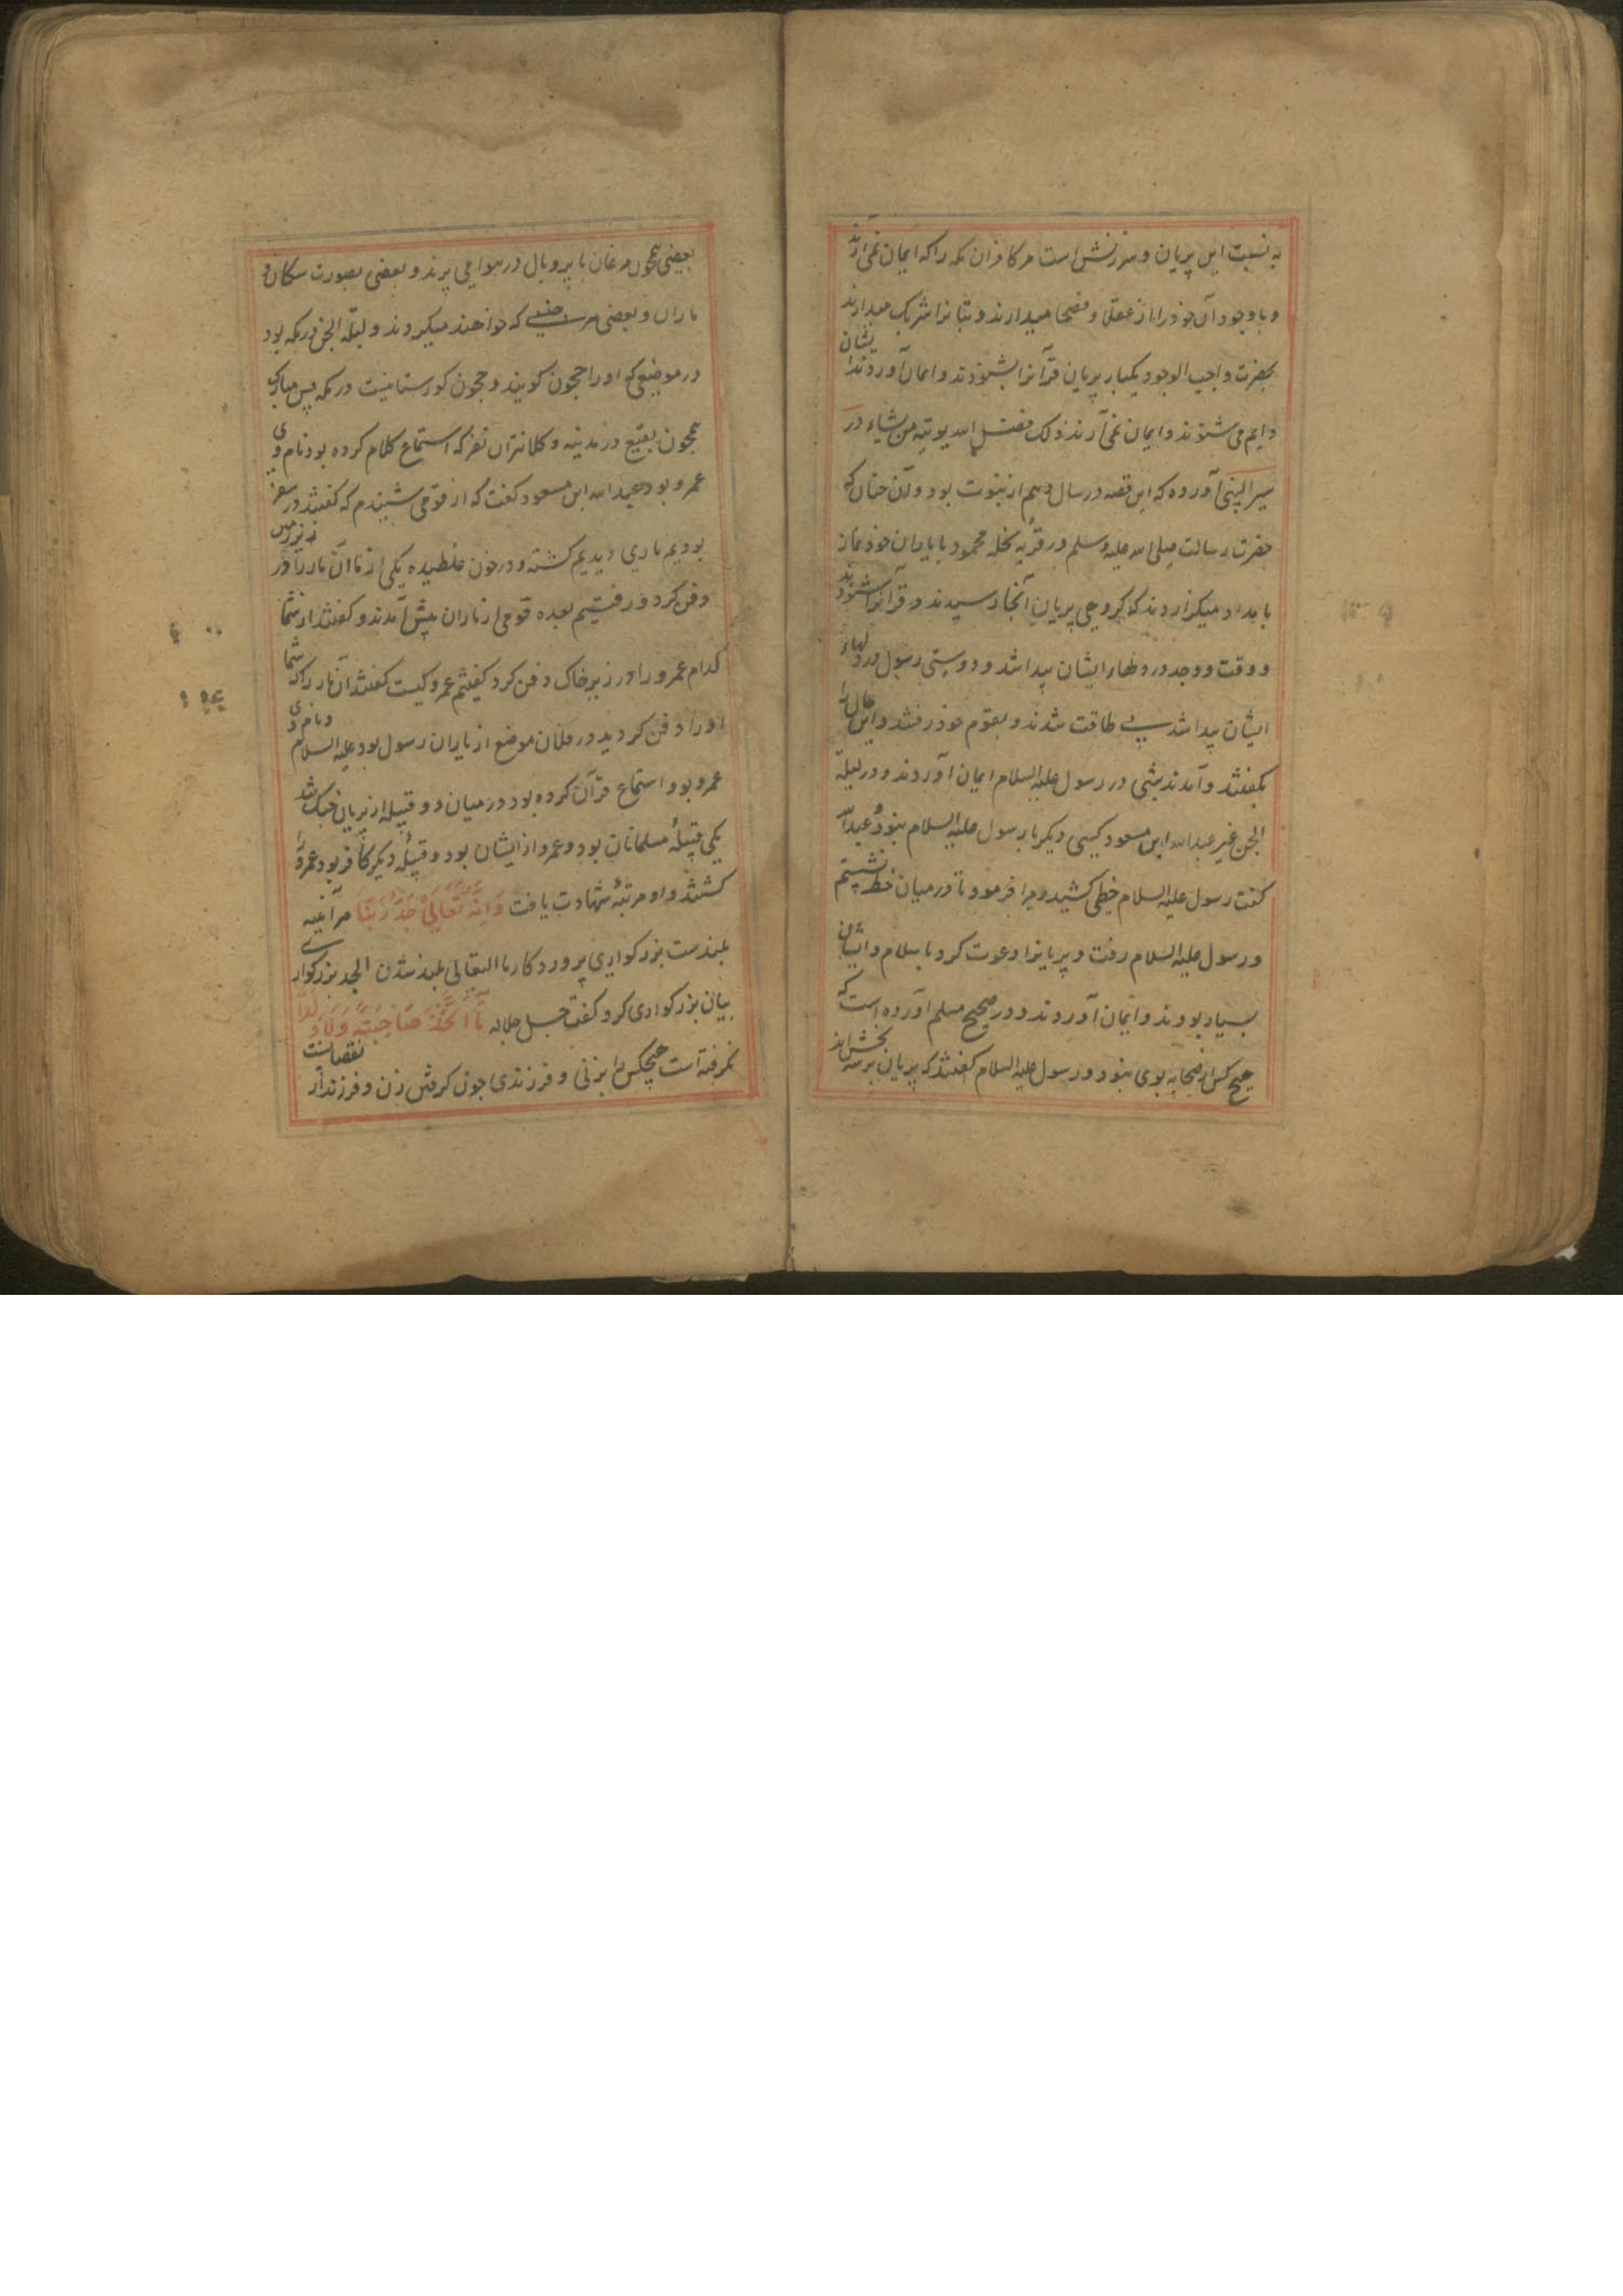 به نسبت این پریان و سرزنش است مر کافران مکه را که ایمان نمی‌آرند
و با وجود آن خود را از عقلا و فصحا میدارند و بتانرا شریک میدارند
بحضرت واجب الوجود یکبار پریان قرآنرا بشنودند و ایمان آوردند ایشان
دایم می شنوند و ایمان نمی آرند ذلک فضل الله یوتیه من یشاء در
سیر النبی آورده که این قصه در سال دهم از نبوت بود و آن چنان که
حضرت رسالت صلی الله علیه وسلم در قریه نخله محمود با یاران خود نماز
بامداد میگزاردند که گروهی پریان آنجا رسیدند و قرآنرا شنودند
و وقت و وجد در دلهاء ایشان پیدا شد و دوستی رسول در دلهاء
ایشان پیدا شد بی طاقت شدند و بقوم خود رفتند و این حال را
بگفتند و آمدند بشی در رسول علیه السلام ایمان آوردند و در لیلة
الجن غیر عبدالله ابن مسعود کسی دیگر با رسول علیه السلام نبود عبدالله
گفت رسول علیه السلام خطی کشید و مرا فرمود تا در میان خط نشستم
و رسول علیه السلام رفت و پریانرا دعوت کرد باسلام و ایشان
بسیار بودند و ایمان آوردند و در صحیح مسلم آورده است که
هیچ کس از صحابه بوی نبود و رسول علیه السلام گفتند که پریان بر سه بخش اند
بعضی همچون مرغان با پر و بال در هوا می پرند و بعضی بصورت سگان و
ماران و بعضی بر جنسی که خواهند میگردند و لیلة الجن در مکه بود
در موضعی که او را حجون گویند و حجون گورستانیست در مکه پس مبارک
همچون بقیع در مدینه و کلانتران نفر که استماع کلام کرده بود نام وی
عمرو بود عبدالله ابن مسعود گفت که از قومی شنیدم که گفتند در سفر
بودیم ماری دیدیم کشته و در خون غلطیده یکی از ما آن مار را در زیر زمین
دفن کرد و رفتیم بعده قومی از ماران پیش آمدند و گفتند از شما
کدام عمرو را در زیر خاک دفن کرد گفتیم عمرو کیست گفتند آن مار را که شما
او را دفن کردید در فلان موضع از یاران رسول بود علیه السلام و نام وی
عمرو بود استماع قرآن کرده بود در میان دو قبیله از پریان جنگ شد
یکی قبیلهٔ مسلمانان بود و عمرو از ایشان بود و قبیلهٔ دیگر کافر بود عمرو را
کشتند و او مرتبهٔ شهادت یافت وَاَنَّهُ تَعَالٰی جَدُّ رَبِّنَا هر آئینه
بلندست بزرگواری پروردگار ما التعالی بلند شدن الجد بزرگواری
بیان بزرگواری کرد گفت جل جلاله مَا اتَّخَذَ صَاحِبَةً وَّلَا وَلَدًا
نگرفته است هیچکس را بزنی و فرزندی چون گرفتن زن و فرزند از نقصانست